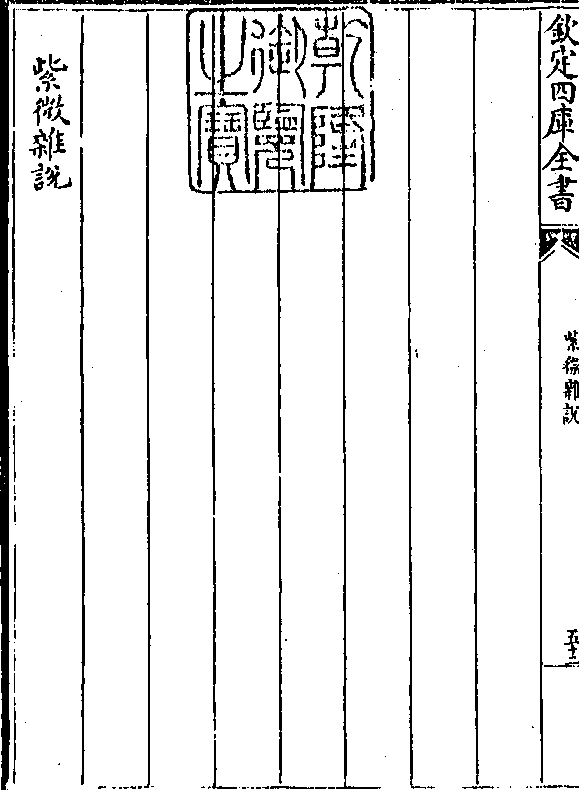 欽定四庫全書
紫微雜說
五十二
乾隆御覽之寶
紫微雜說